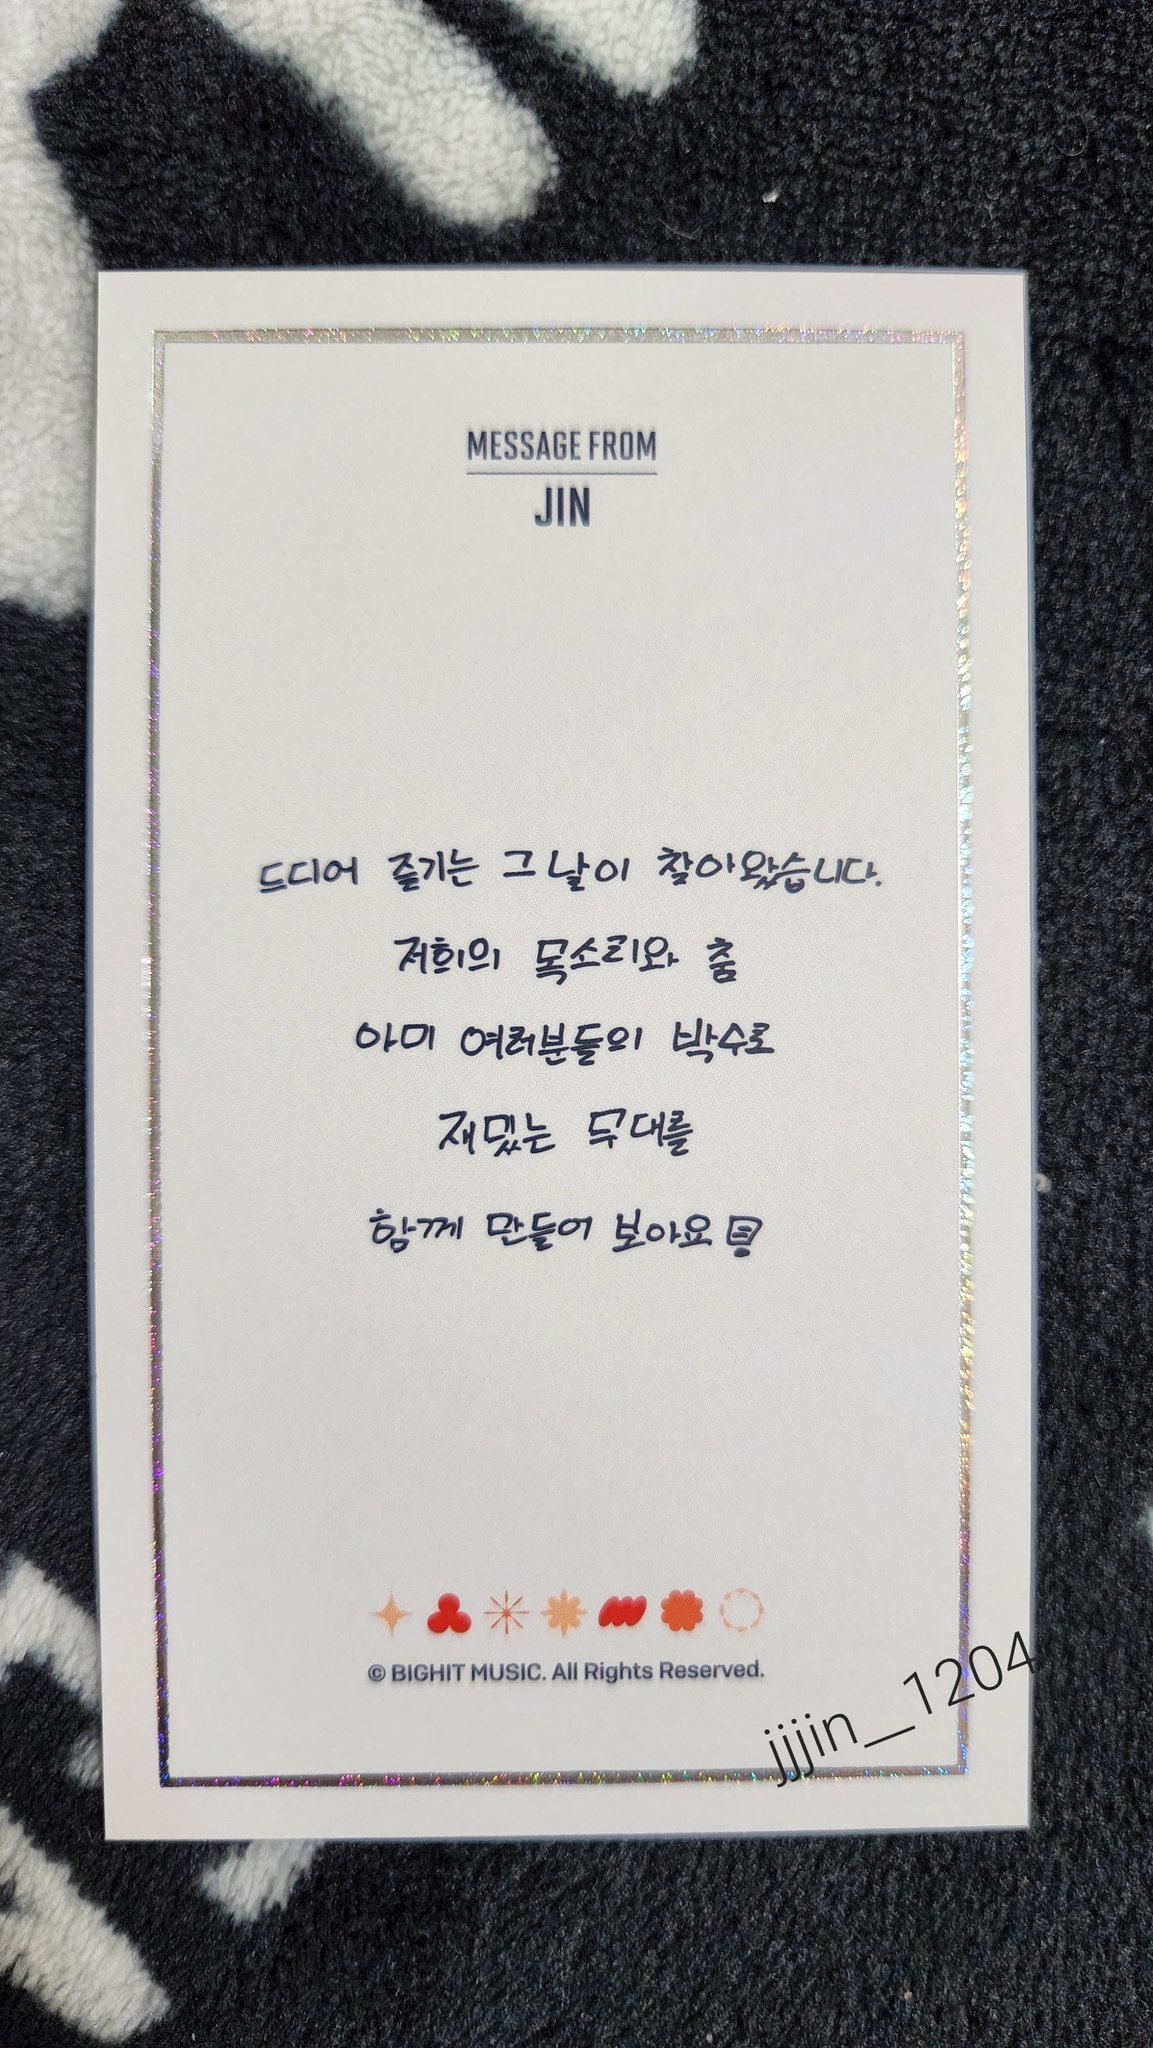 MESSAGE FROM
JIN
드디어 즐기는 그날이 찾아왔습니다.
저희의 목소리와 춤
아미 여러분들의 박수로
재밌는 무대를
함께 만들어 보아요
© BIGHIT MUSIC. All Rights Reserved.
jjjin__1204